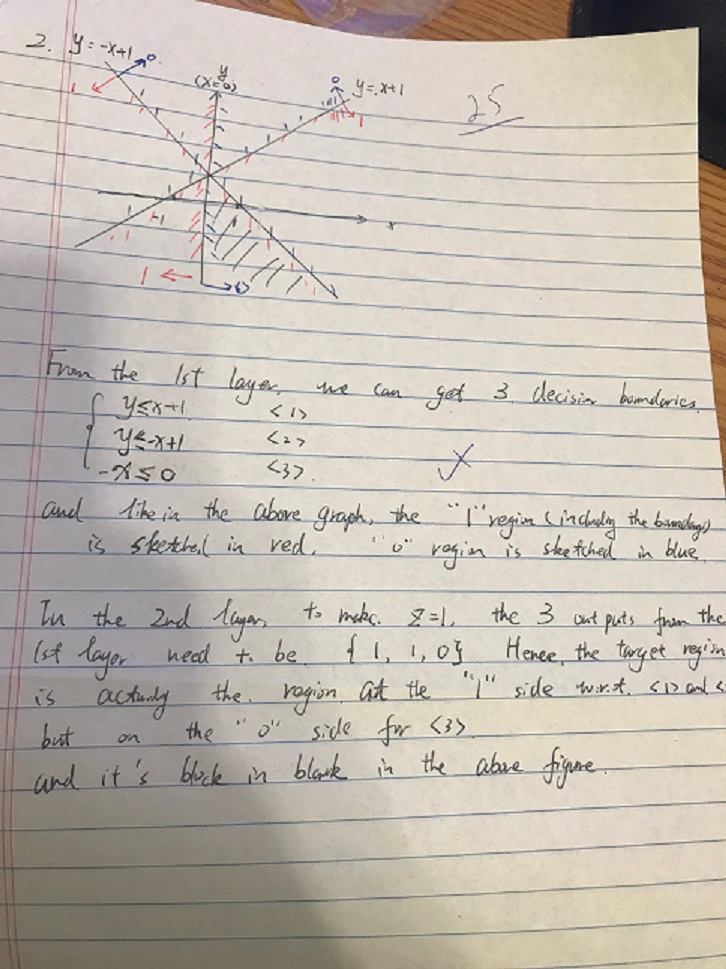 2. y = -x+1 0 y (x=0) 0 y = x+1 25
1 1
-1 x
1 0
From the 1st layer, we can get 3 decision boundaries.
y≤x+1 <1>
y≤-x+1 <2>
-x≤0 <3>.
and like in the above graph, the "1" region (including the boundary)
is sketched in red. "0" region is sketched in blue.
In the 2nd layer, to make z=1, the 3 outputs from the
1st layer need to be {1, 1, 0} Hence, the target region
is actually the region at the "1" side w.r.t. <1> and
but on the "0" side for <3>
and it's block in blank in the above figure.